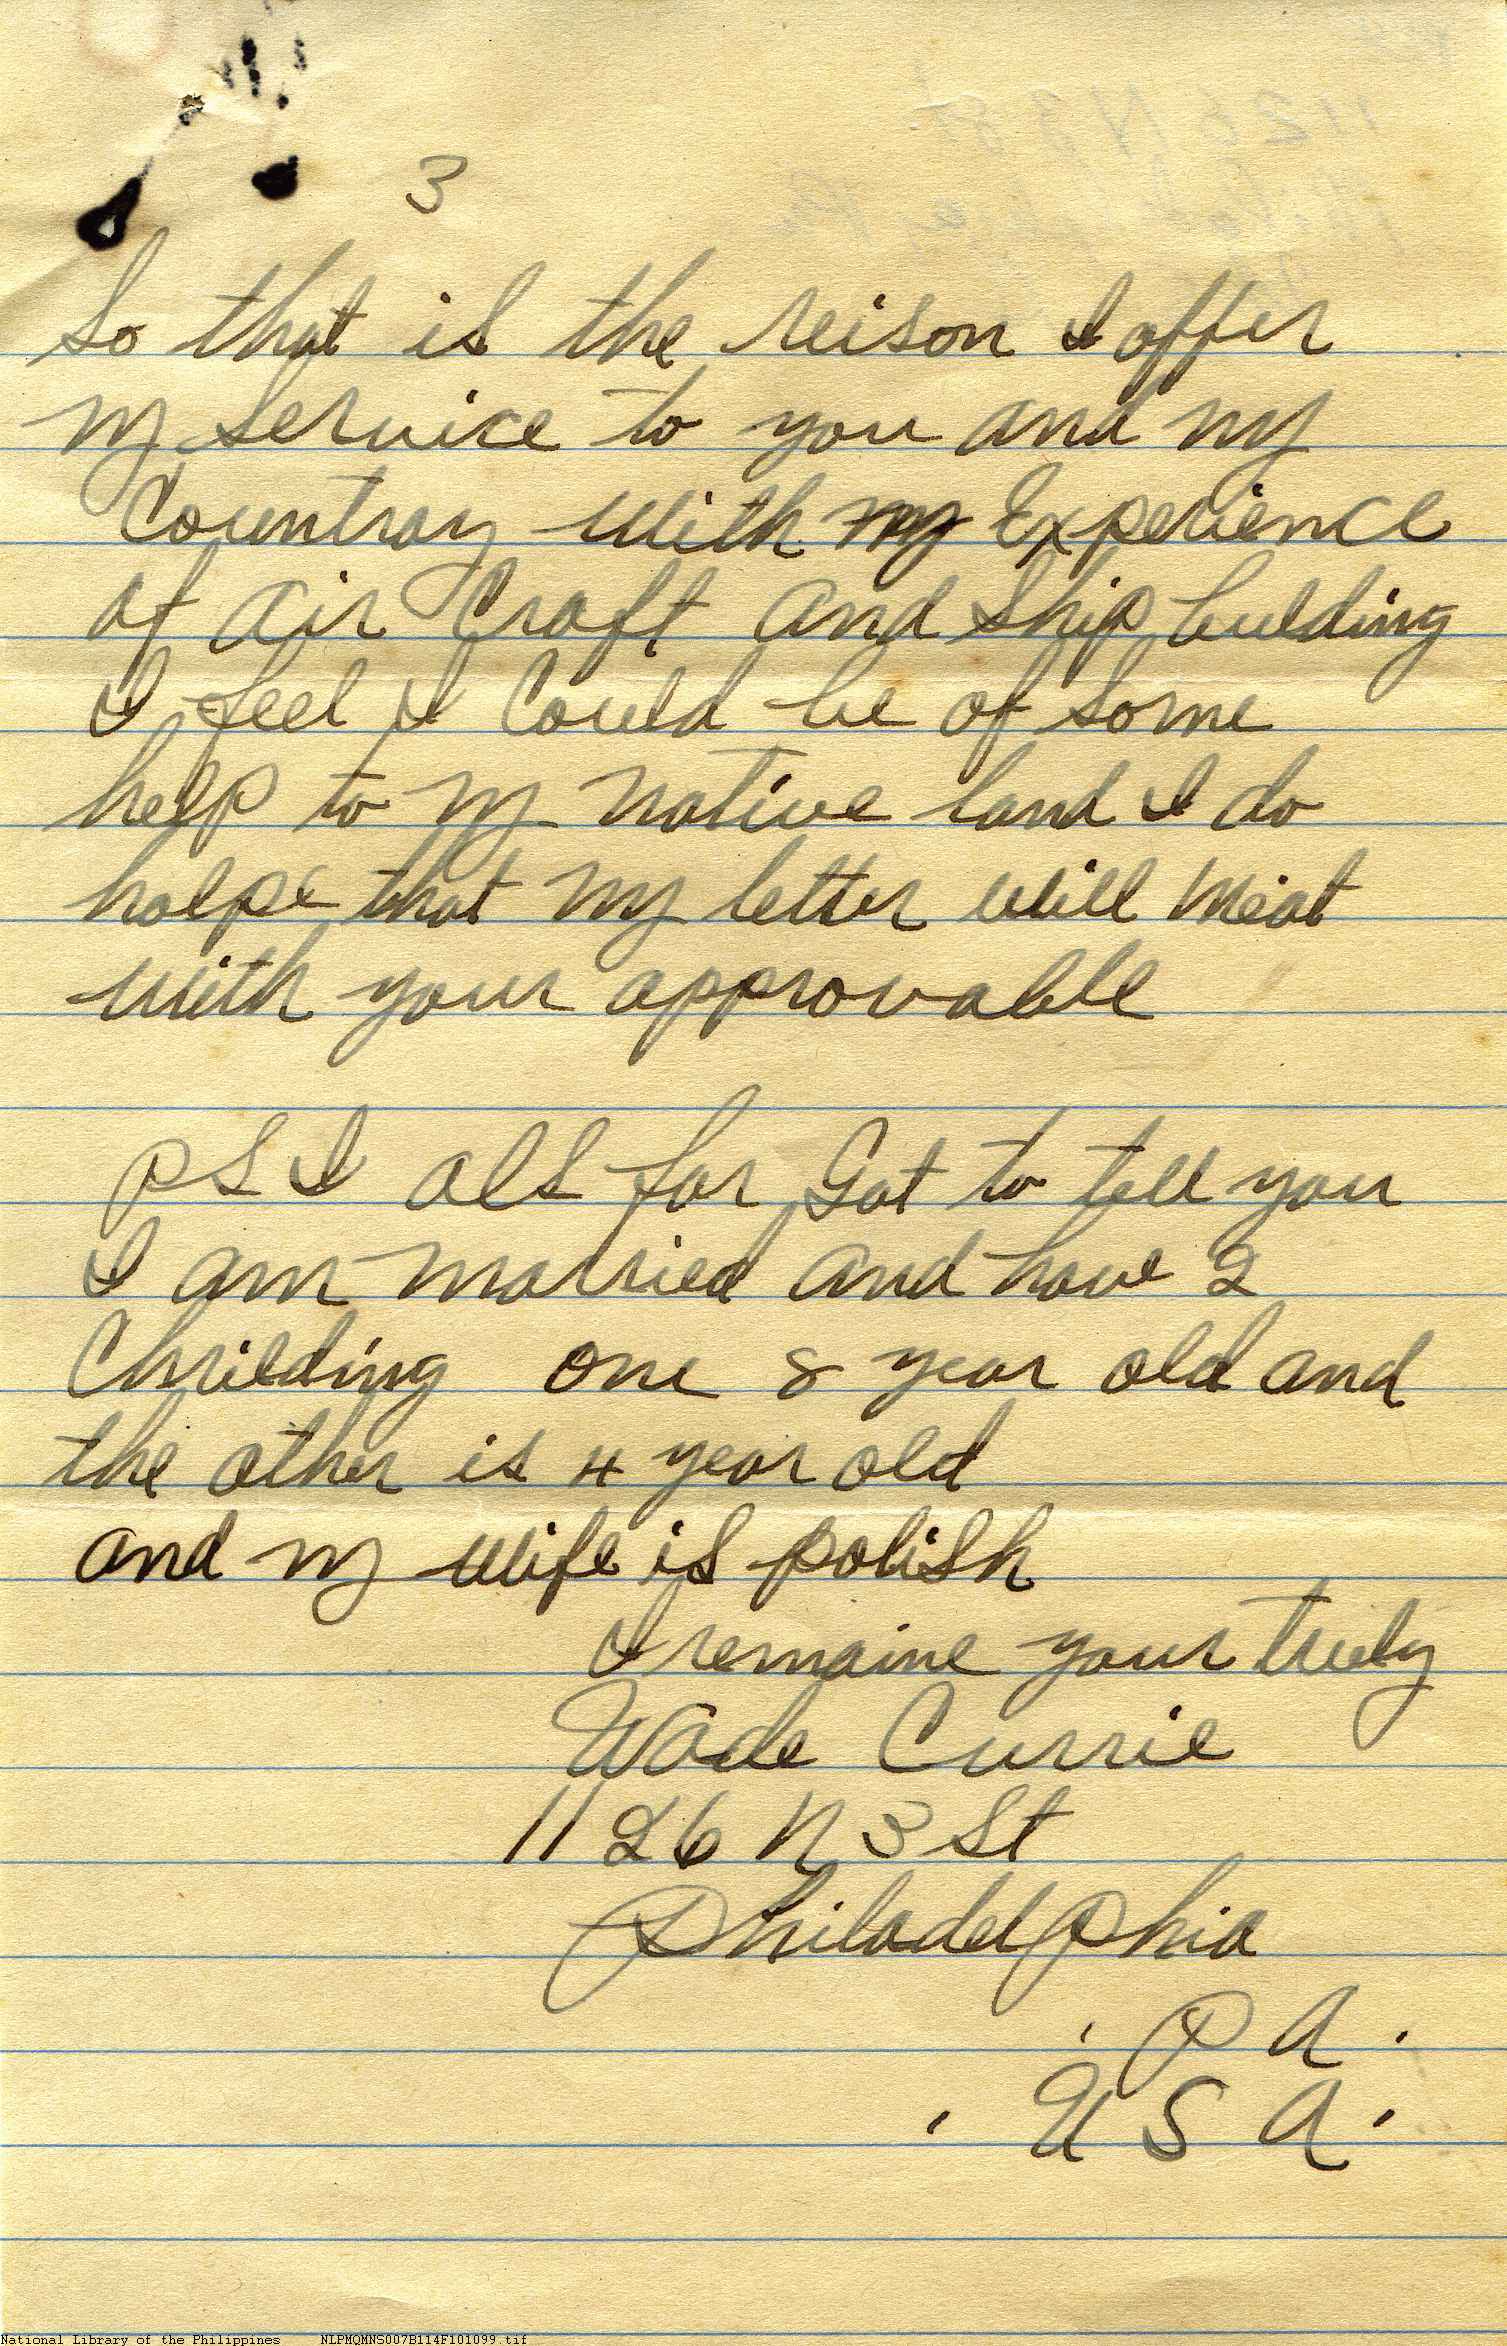 3
So that is the reison I offer
my service to you and my
Countray with my Experience
of Air Craft and Ship bulding
I feel I Could be of some
help to my native land I do
holpe that my letter will Meat
with your approvable
PS I als for Got to tell you
I am married and have 2
Chrilding one 8 year old and
the other is 4 year old
and my wife is polish
I remaine your truly
Wade Currie
1126 N 3 St
Philadelphia
. P A .
. U S A .
National Library of the Philippines NLPMQMNS007B114F101099.tif